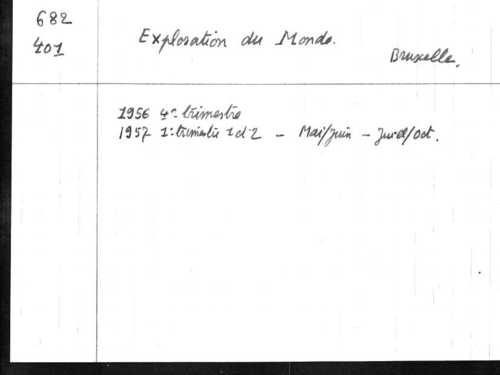 682
401
Exploration du Monde.
Bruxelles.
1956 4e trimestre
1957 1e trimestre 1 et 2 - Mai/Juin -